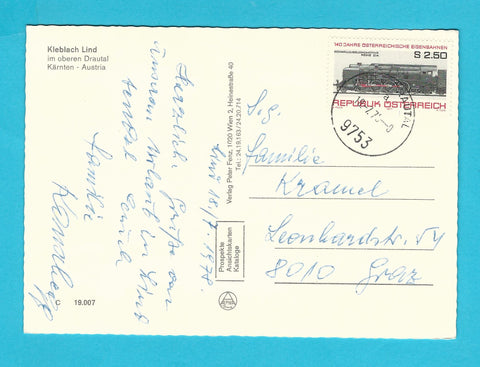 Kleblach Lind
im oberen Drautal
Kärnten - Austria
Herzliche Grüße von
unserem Urlaub in Lind
sendet Euch
Familie
Lind 18./7. 1978
C 19.007
Verlag Peter Fenz, 1020 Wien 2, Heinestraße 40
Tel.: 24.19.163/24.20.714
Prospekte
Ansichtskarten
Kataloge
140 JAHRE ÖSTERREICHISCHE EISENBAHNEN
S 2.50
REPUBLIK ÖSTERREICH
9753
Familie
Kramel
Leonhardstr. 54
8010 Graz